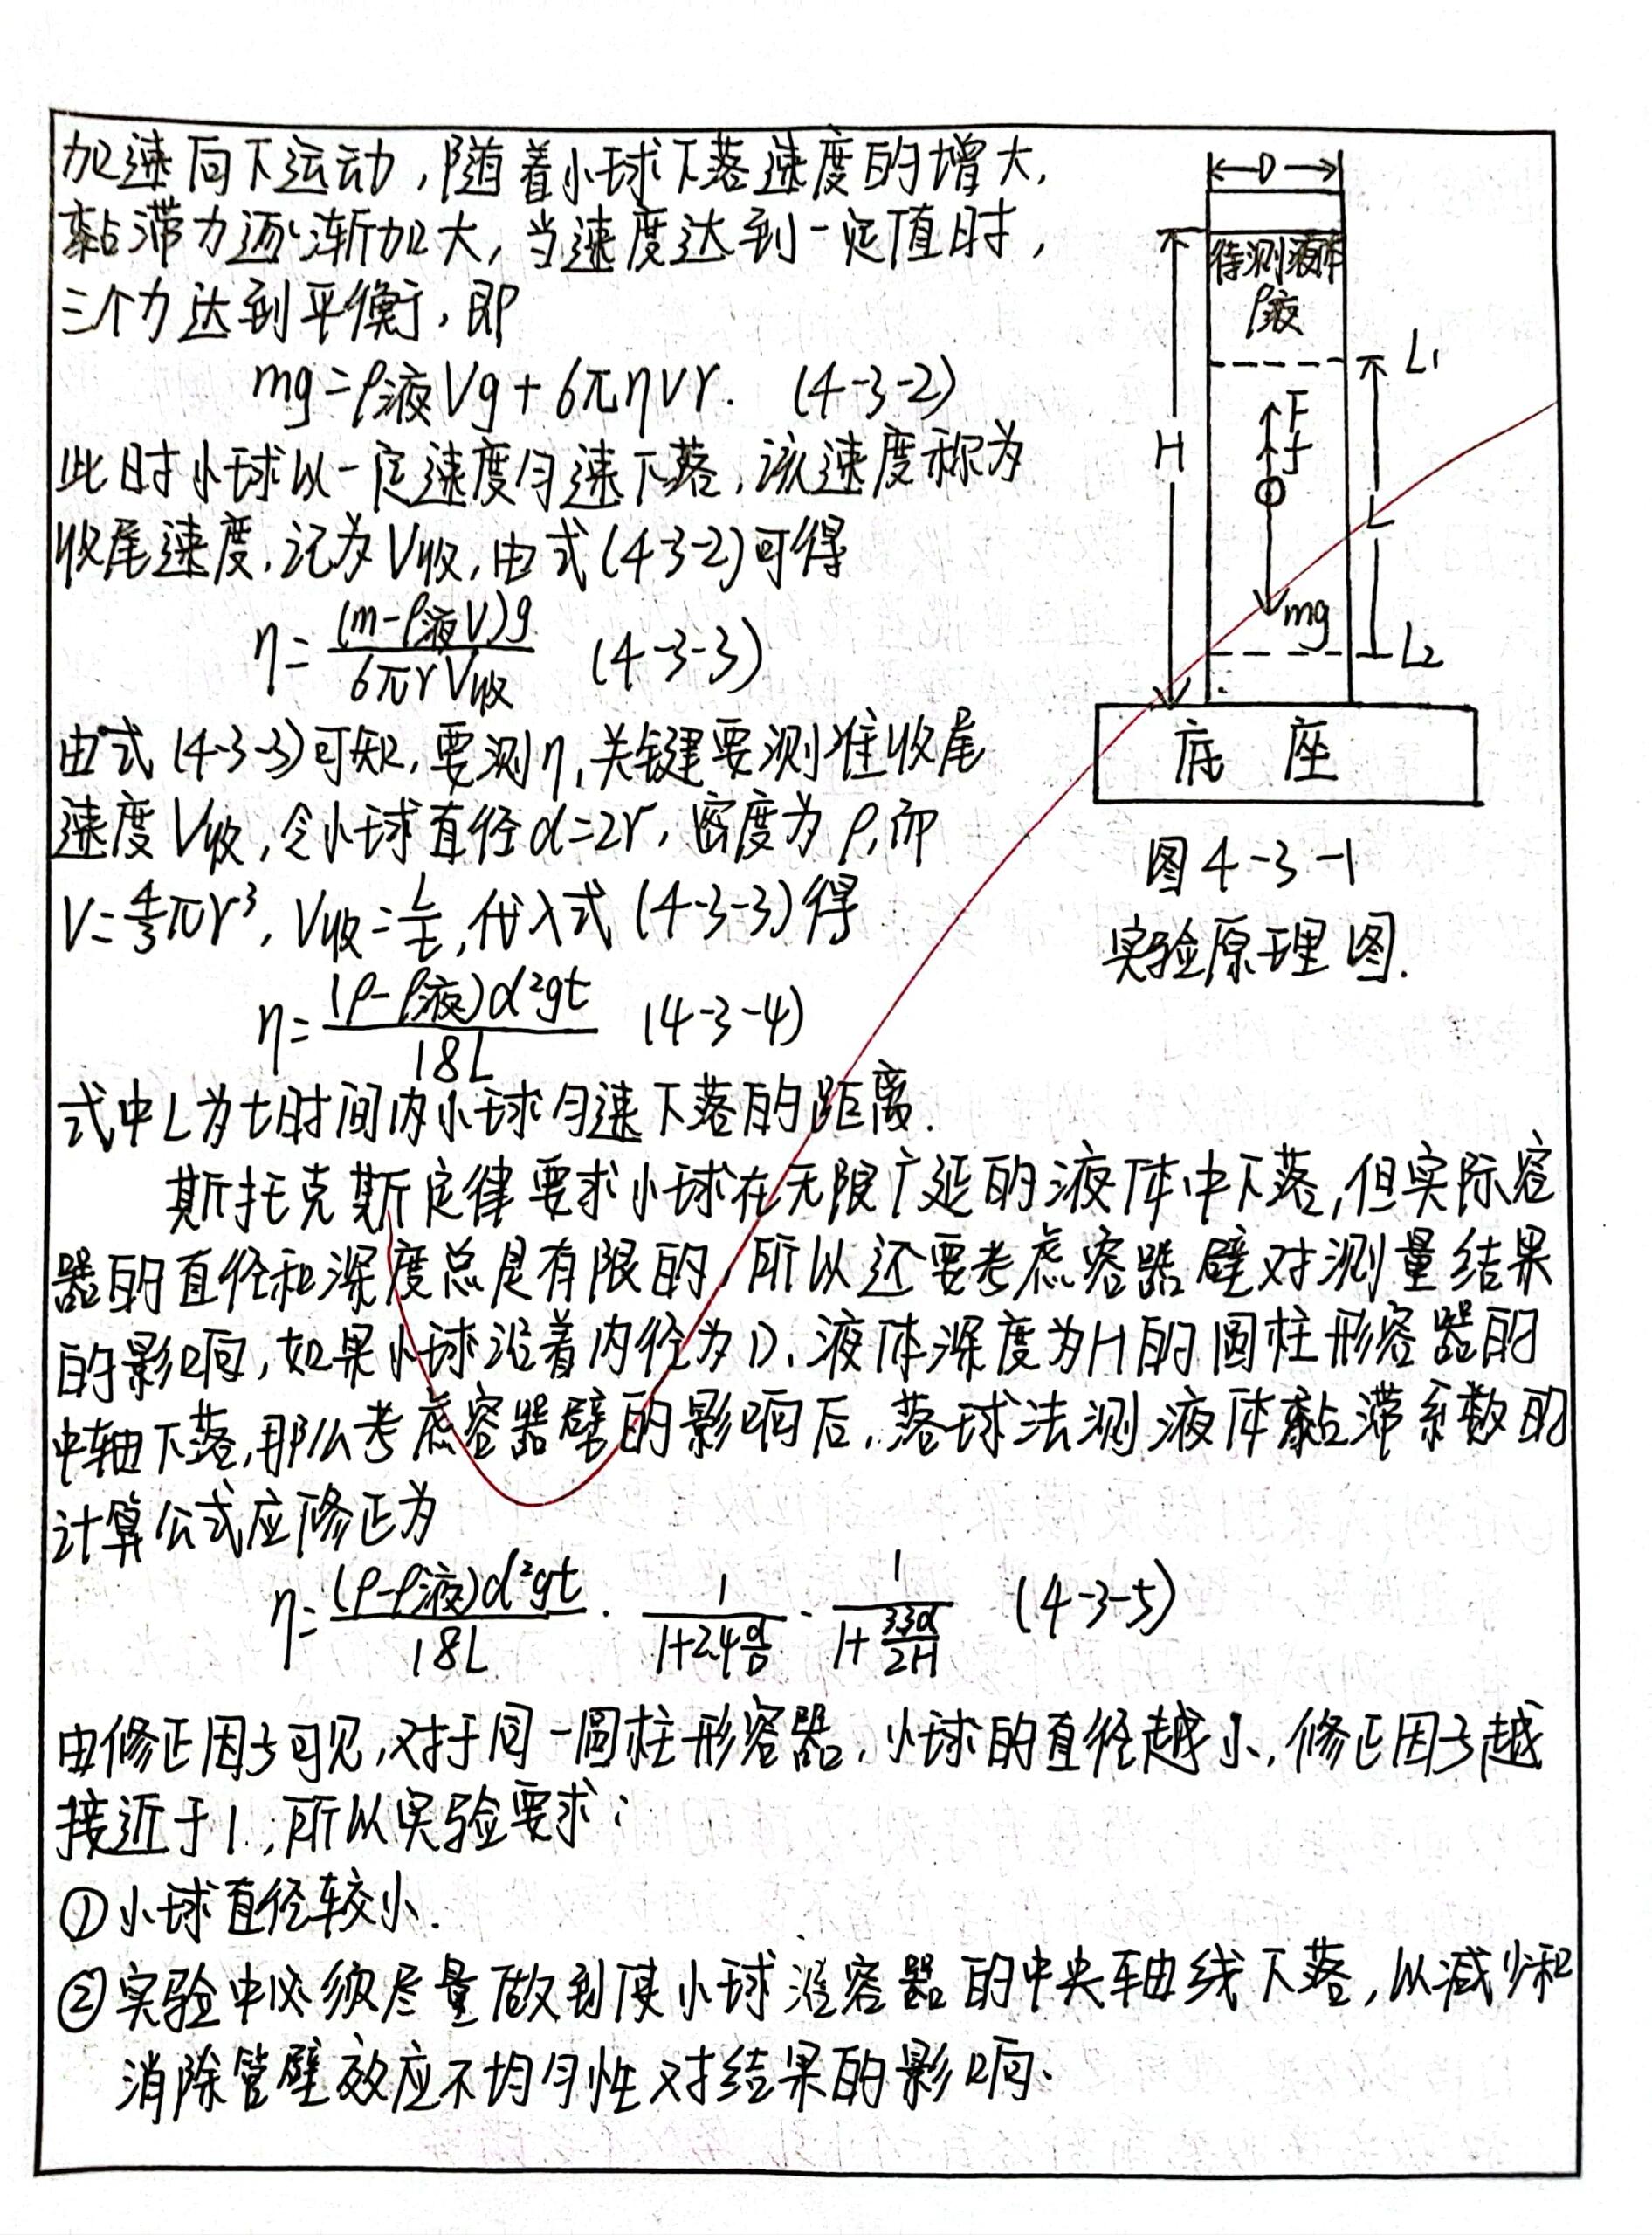 加速向下运动,随着小球下落速度的增大,
黏滞力逐渐加大,当速度达到一定值时,
三个力达到平衡,即
mg=ρ液Vg+6πηvr. (4-3-2)
此时小球以一定速度匀速下落,该速度称为
收尾速度,记为V收,由式(4-3-2)可得
η=(m-ρ液V)g/6πrV收 (4-3-3)
由式(4-3-3)可知,要测η,关键要测准收尾
速度V收,令小球直径d=2r,密度为ρ,而
V=4/3πr³,V收=L/t,代入式(4-3-3)得
η=(ρ-ρ液)d²gt/18L (4-3-4)
式中L为t时间内小球匀速下落的距离.
D
待测液体
ρ液
L₁
F
f
H
L
mg
L₂
底座
图4-3-1
实验原理图.
斯托克斯定律要求小球在无限广延的液体中下落,但实际容
器的直径和深度总是有限的,所以还要考虑容器壁对测量结果
的影响,如果小球沿着内径为D、液体深度为H的圆柱形容器的
中轴下落,那么考虑容器壁的影响后,落球法测液体黏滞系数的
计算公式应修正为
η=(ρ-ρ液)d²gt/18L · 1/(1+2.4d/D) · 1/(1+3.3d/2H) (4-3-5)
由修正因子可见,对于同一圆柱形容器,小球的直径越小,修正因子越
接近于1,所以实验要求:
①小球直径较小.
②实验中必须尽量做到使小球沿容器的中央轴线下落,以减少和
消除管壁效应不均匀性对结果的影响.